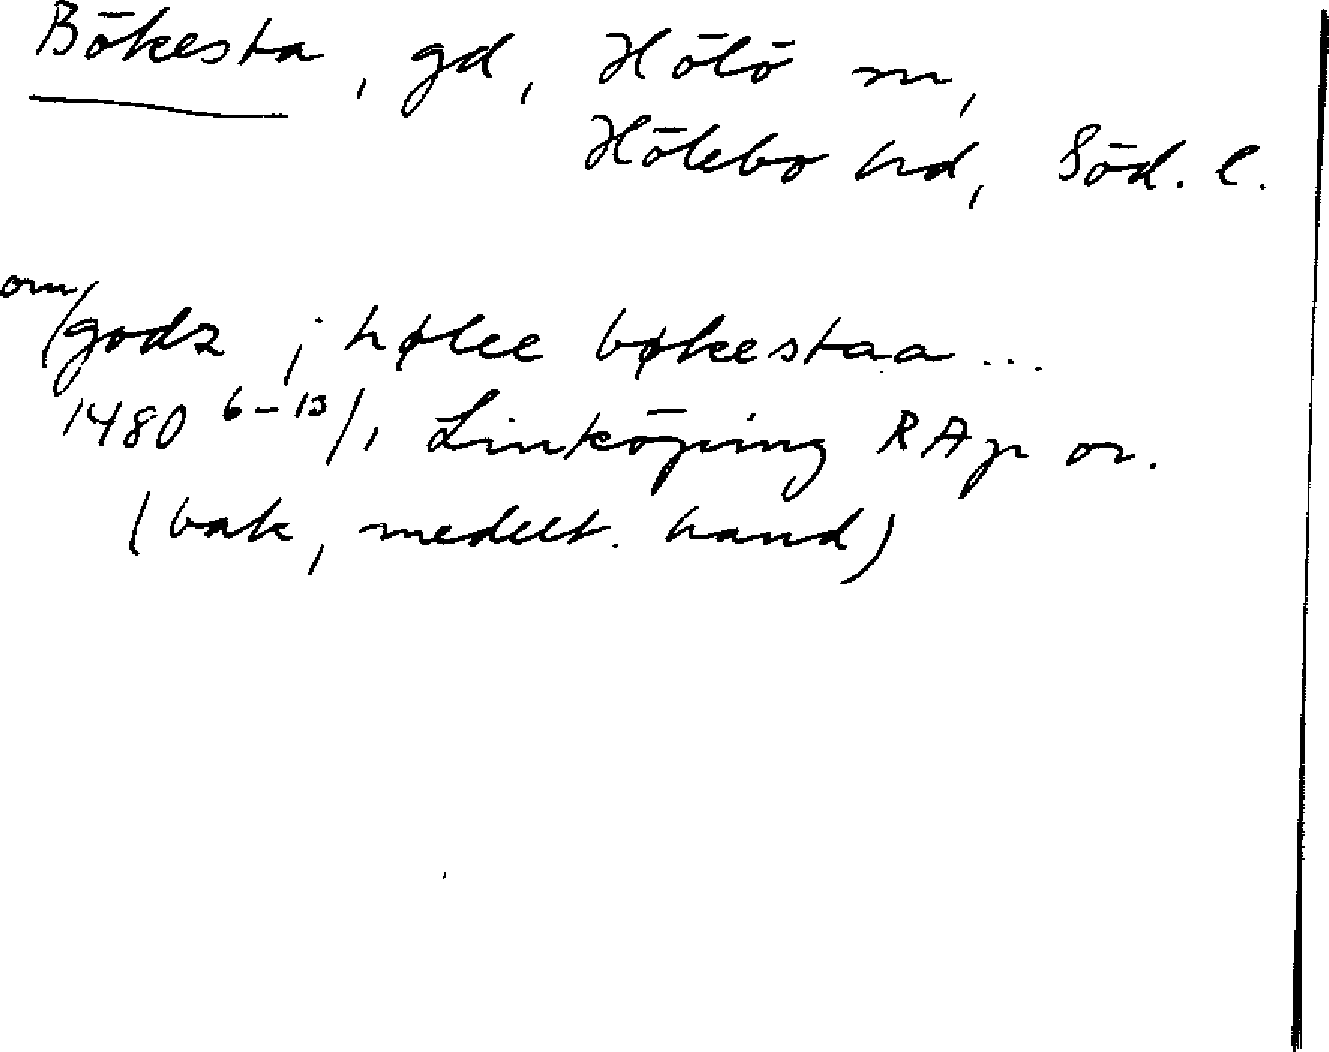 Bökesta, gd, Hölö sn,
Hölebo hd, Söd. l.
om
godz j hølee bøkestaa...
1480 6-13/1 Linköping RAp or.
(bak, medelt. hand)